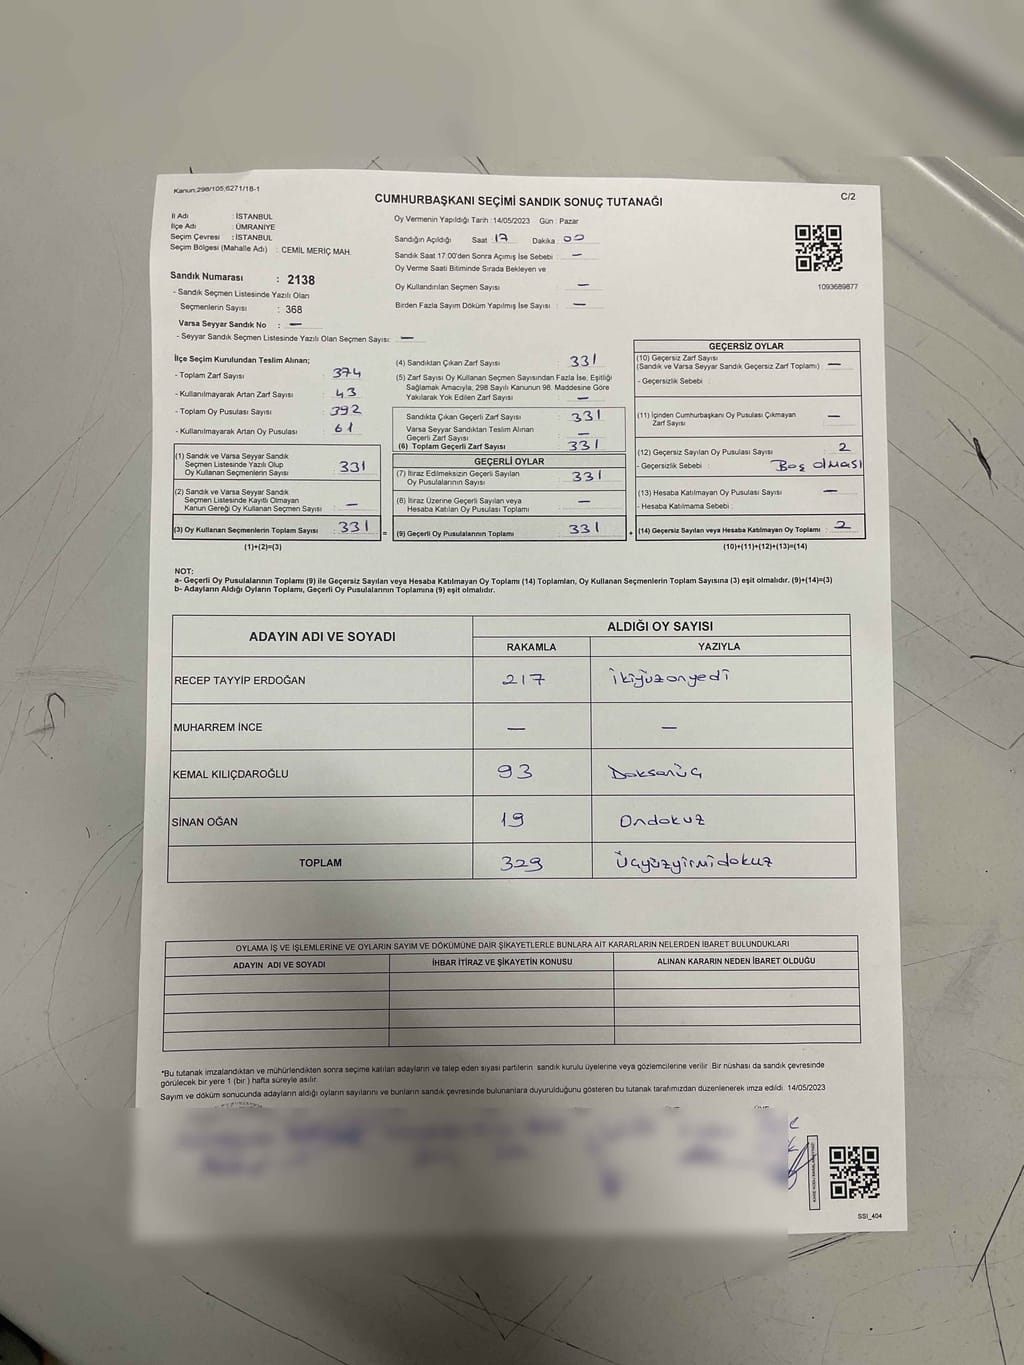 Kanun:298/105,6271/18-1
CUMHURBAŞKANI SEÇİMİ SANDIK SONUÇ TUTANAĞI
C/2
İl Adı : İSTANBUL
İlçe Adı : ÜMRANİYE
Seçim Çevresi : İSTANBUL
Seçim Bölgesi (Mahalle Adı) : CEMİL MERİÇ MAH.
Oy Vermenin Yapıldığı Tarih :14/05/2023 Gün : Pazar
Sandığın Açıldığı Saat : 17 Dakika : 00
Sandık Saat 17:00'den Sonra Açımış İse Sebebi : —
Oy Verme Saati Bitiminde Sırada Bekleyen ve
Oy Kullandırılan Seçmen Sayısı : —
Birden Fazla Sayım Döküm Yapılmış İse Sayısı : —
1093689877
Sandık Numarası : 2138
- Sandık Seçmen Listesinde Yazılı Olan
Seçmenlerin Sayısı : 368
Varsa Seyyar Sandık No : —
- Seyyar Sandık Seçmen Listesinde Yazılı Olan Seçmen Sayısı: —
İlçe Seçim Kurulundan Teslim Alınan;
- Toplam Zarf Sayısı : 374
- Kullanılmayarak Artan Zarf Sayısı : 43
- Toplam Oy Pusulası Sayısı : 392
- Kullanılmayarak Artan Oy Pusulası : 61
(1) Sandık ve Varsa Seyyar Sandık
Seçmen Listesinde Yazılı Olup
Oy Kullanan Seçmenlerin Sayısı : 331
(2) Sandık ve Varsa Seyyar Sandık
Seçmen Listesinde Kayıtlı Olmayan
Kanun Gereği Oy Kullanan Seçmen Sayısı : —
(3) Oy Kullanan Seçmenlerin Toplam Sayısı : 331
(1)+(2)=(3)
(4) Sandıktan Çıkan Zarf Sayısı : 331
(5) Zarf Sayısı Oy Kullanan Seçmen Sayısından Fazla İse, Eşitliği
Sağlamak Amacıyla; 298 Sayılı Kanunun 98. Maddesine Göre
Yakılarak Yok Edilen Zarf Sayısı : —
Sandıkta Çıkan Geçerli Zarf Sayısı : 331
Varsa Seyyar Sandıktan Teslim Alınan
Geçerli Zarf Sayısı : —
(6) Toplam Geçerli Zarf Sayısı : 331
GEÇERLİ OYLAR
(7) İtiraz Edilmeksizin Geçerli Sayılan
Oy Pusulalarının Sayısı : 331
(8) İtiraz Üzerine Geçerli Sayılan veya
Hesaba Katılan Oy Pusulası Toplamı : —
= (9) Geçerli Oy Pusulalarının Toplamı : 331 +
GEÇERSİZ OYLAR
(10) Geçersiz Zarf Sayısı
(Sandık ve Varsa Seyyar Sandık Geçersiz Zarf Toplamı) : —
- Geçersizlik Sebebi :
(11) İçinden Cumhurbaşkanı Oy Pusulası Çıkmayan
Zarf Sayısı : —
(12) Geçersiz Sayılan Oy Pusulası Sayısı : 2
- Geçersizlik Sebebi : Boş olması
(13) Hesaba Katılmayan Oy Pusulası Sayısı : —
- Hesaba Katılmama Sebebi :
(14) Geçersiz Sayılan veya Hesaba Katılmayan Oy Toplamı : 2
(10)+(11)+(12)+(13)=(14)
NOT:
a- Geçerli Oy Pusulalarının Toplamı (9) ile Geçersiz Sayılan veya Hesaba Katılmayan Oy Toplamı (14) Toplamları, Oy Kullanan Seçmenlerin Toplam Sayısına (3) eşit olmalıdır. (9)+(14)=(3)
b- Adayların Aldığı Oyların Toplamı, Geçerli Oy Pusulalarının Toplamına (9) eşit olmalıdır.
ADAYIN ADI VE SOYADI ALDIĞI OY SAYISI
RAKAMLA YAZIYLA
RECEP TAYYİP ERDOĞAN 217 ikiyüzonyedi
MUHARREM İNCE — —
KEMAL KILIÇDAROĞLU 93 Doksanüç
SİNAN OĞAN 19 Ondokuz
TOPLAM 329 Üçyüzyirmidokuz
OYLAMA İŞ VE İŞLEMLERİNE VE OYLARIN SAYIM VE DÖKÜMÜNE DAİR ŞİKAYETLERLE BUNLARA AİT KARARLARIN NELERDEN İBARET BULUNDUKLARI
ADAYIN ADI VE SOYADI İHBAR İTİRAZ VE ŞİKAYETİN KONUSU ALINAN KARARIN NEDEN İBARET OLDUĞU
*Bu tutanak imzalandıktan ve mühürlendikten sonra seçime katılan adayların ve talep eden siyasi partilerin sandık kurulu üyelerine veya gözlemcilerine verilir. Bir nüshası da sandık çevresinde
görülecek bir yere 1 (bir ) hafta süreyle asılır.
Sayım ve döküm sonucunda adayların aldığı oyların sayılarını ve bunların sandık çevresinde bulunanlara duyurulduğunu gösteren bu tutanak tarafımızdan düzenlenerek imza edildi. 14/05/2023
SSI_404